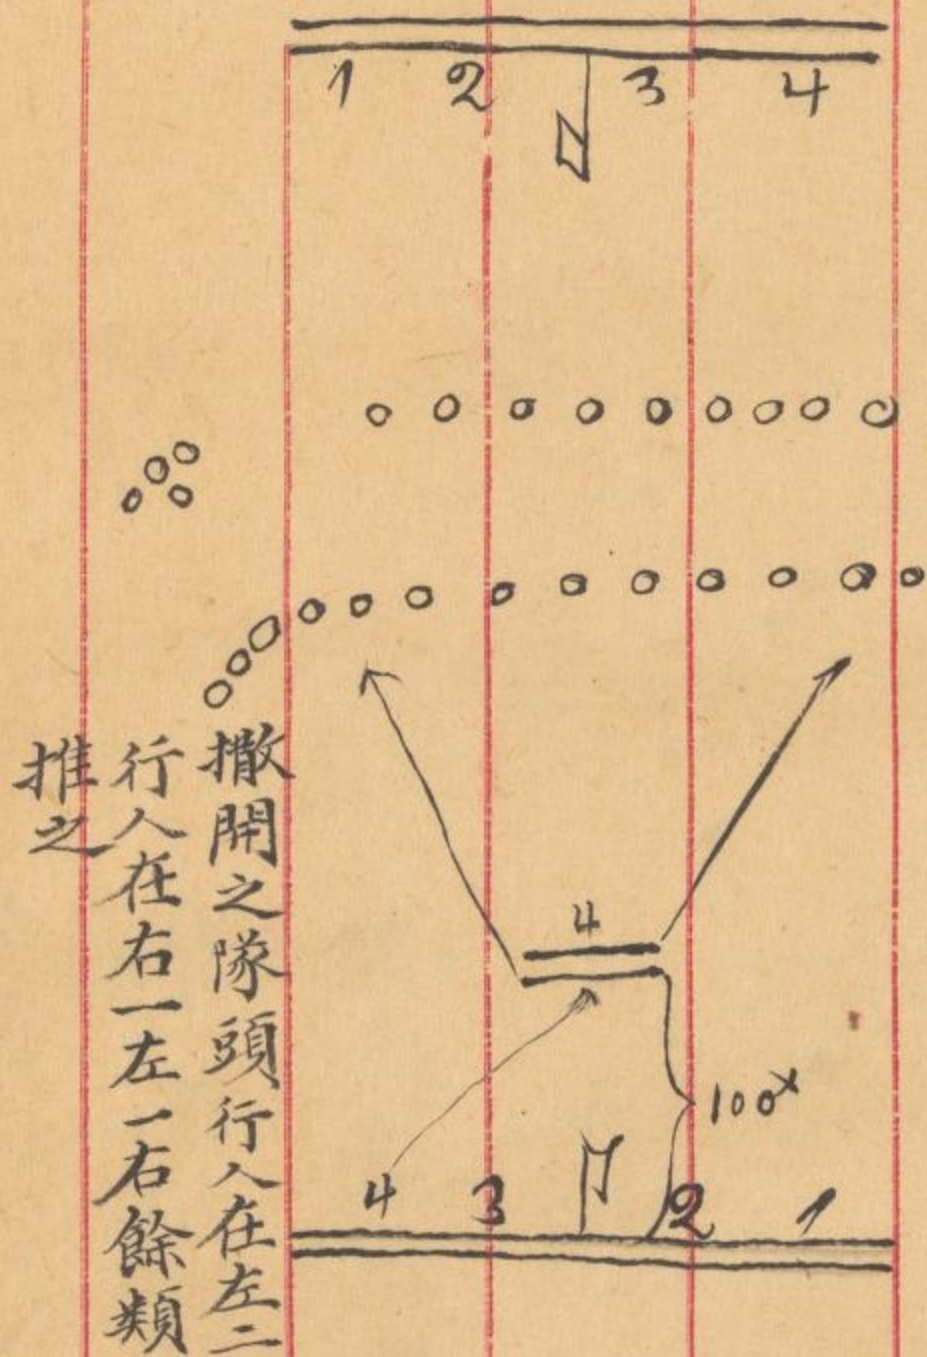 1 2 3 4
4
100x
4 3 2 1
撒開之隊頭行人在左二
行人在右一左一右餘類
推之